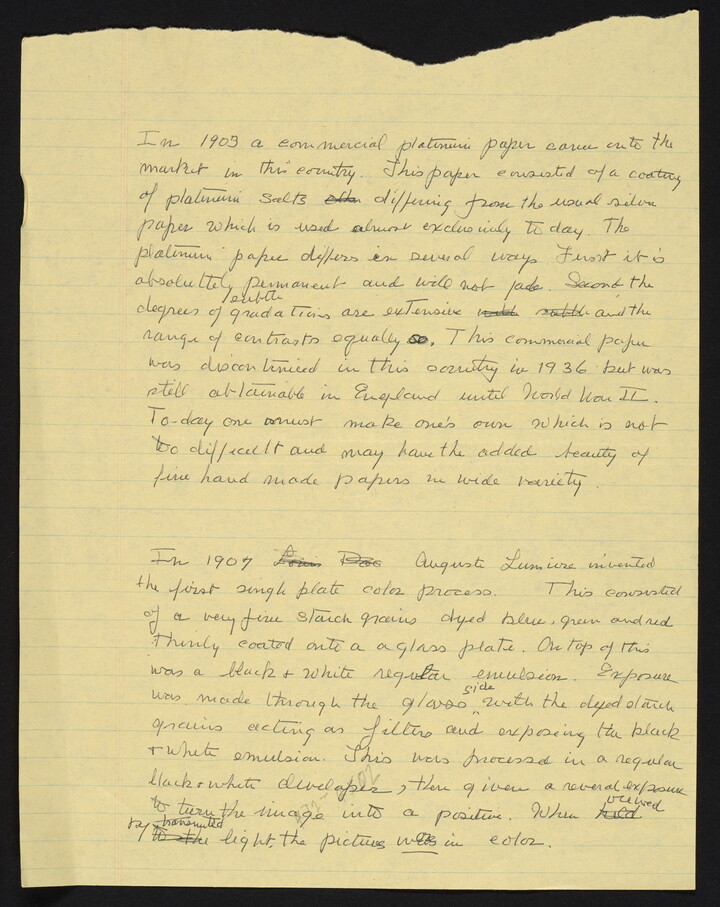 In 1903 a commercial platinum paper came onto the
market in this country. This paper consisted of a coating
of platinum salts differing from the usual silver
paper which is used almost exclusively to day. The
platinum paper differs in several ways. First it is
absolutely permanent and will not fade. Second the
subtle
degrees of gradations are extensive with subtle and the
range of contrasts equally so. This commercial paper
was discontinued in this country in 1936 but was
still obtainable in England until World War II.
To-day one must make one's own which is not
too difficult and may have the added beauty of
fine hand made papers in wide variety.
In 1907 Louis Auguste Lumiere invented
the first single plate color process. This consisted
of a very fine starch grains dyed blue, green and red
thinly coated onto a a glass plate. On top of this
was a black + white regular emulsion. Exposure
side
was made through the glass with the dyed starch
grains acting as filters and exposing the black
+ white emulsion. This was processed in a regular
black + white developer, then given a reversal exposure
viewed
to turn the image into a positive. When held
by transmitted
to the light, the picture was in color.